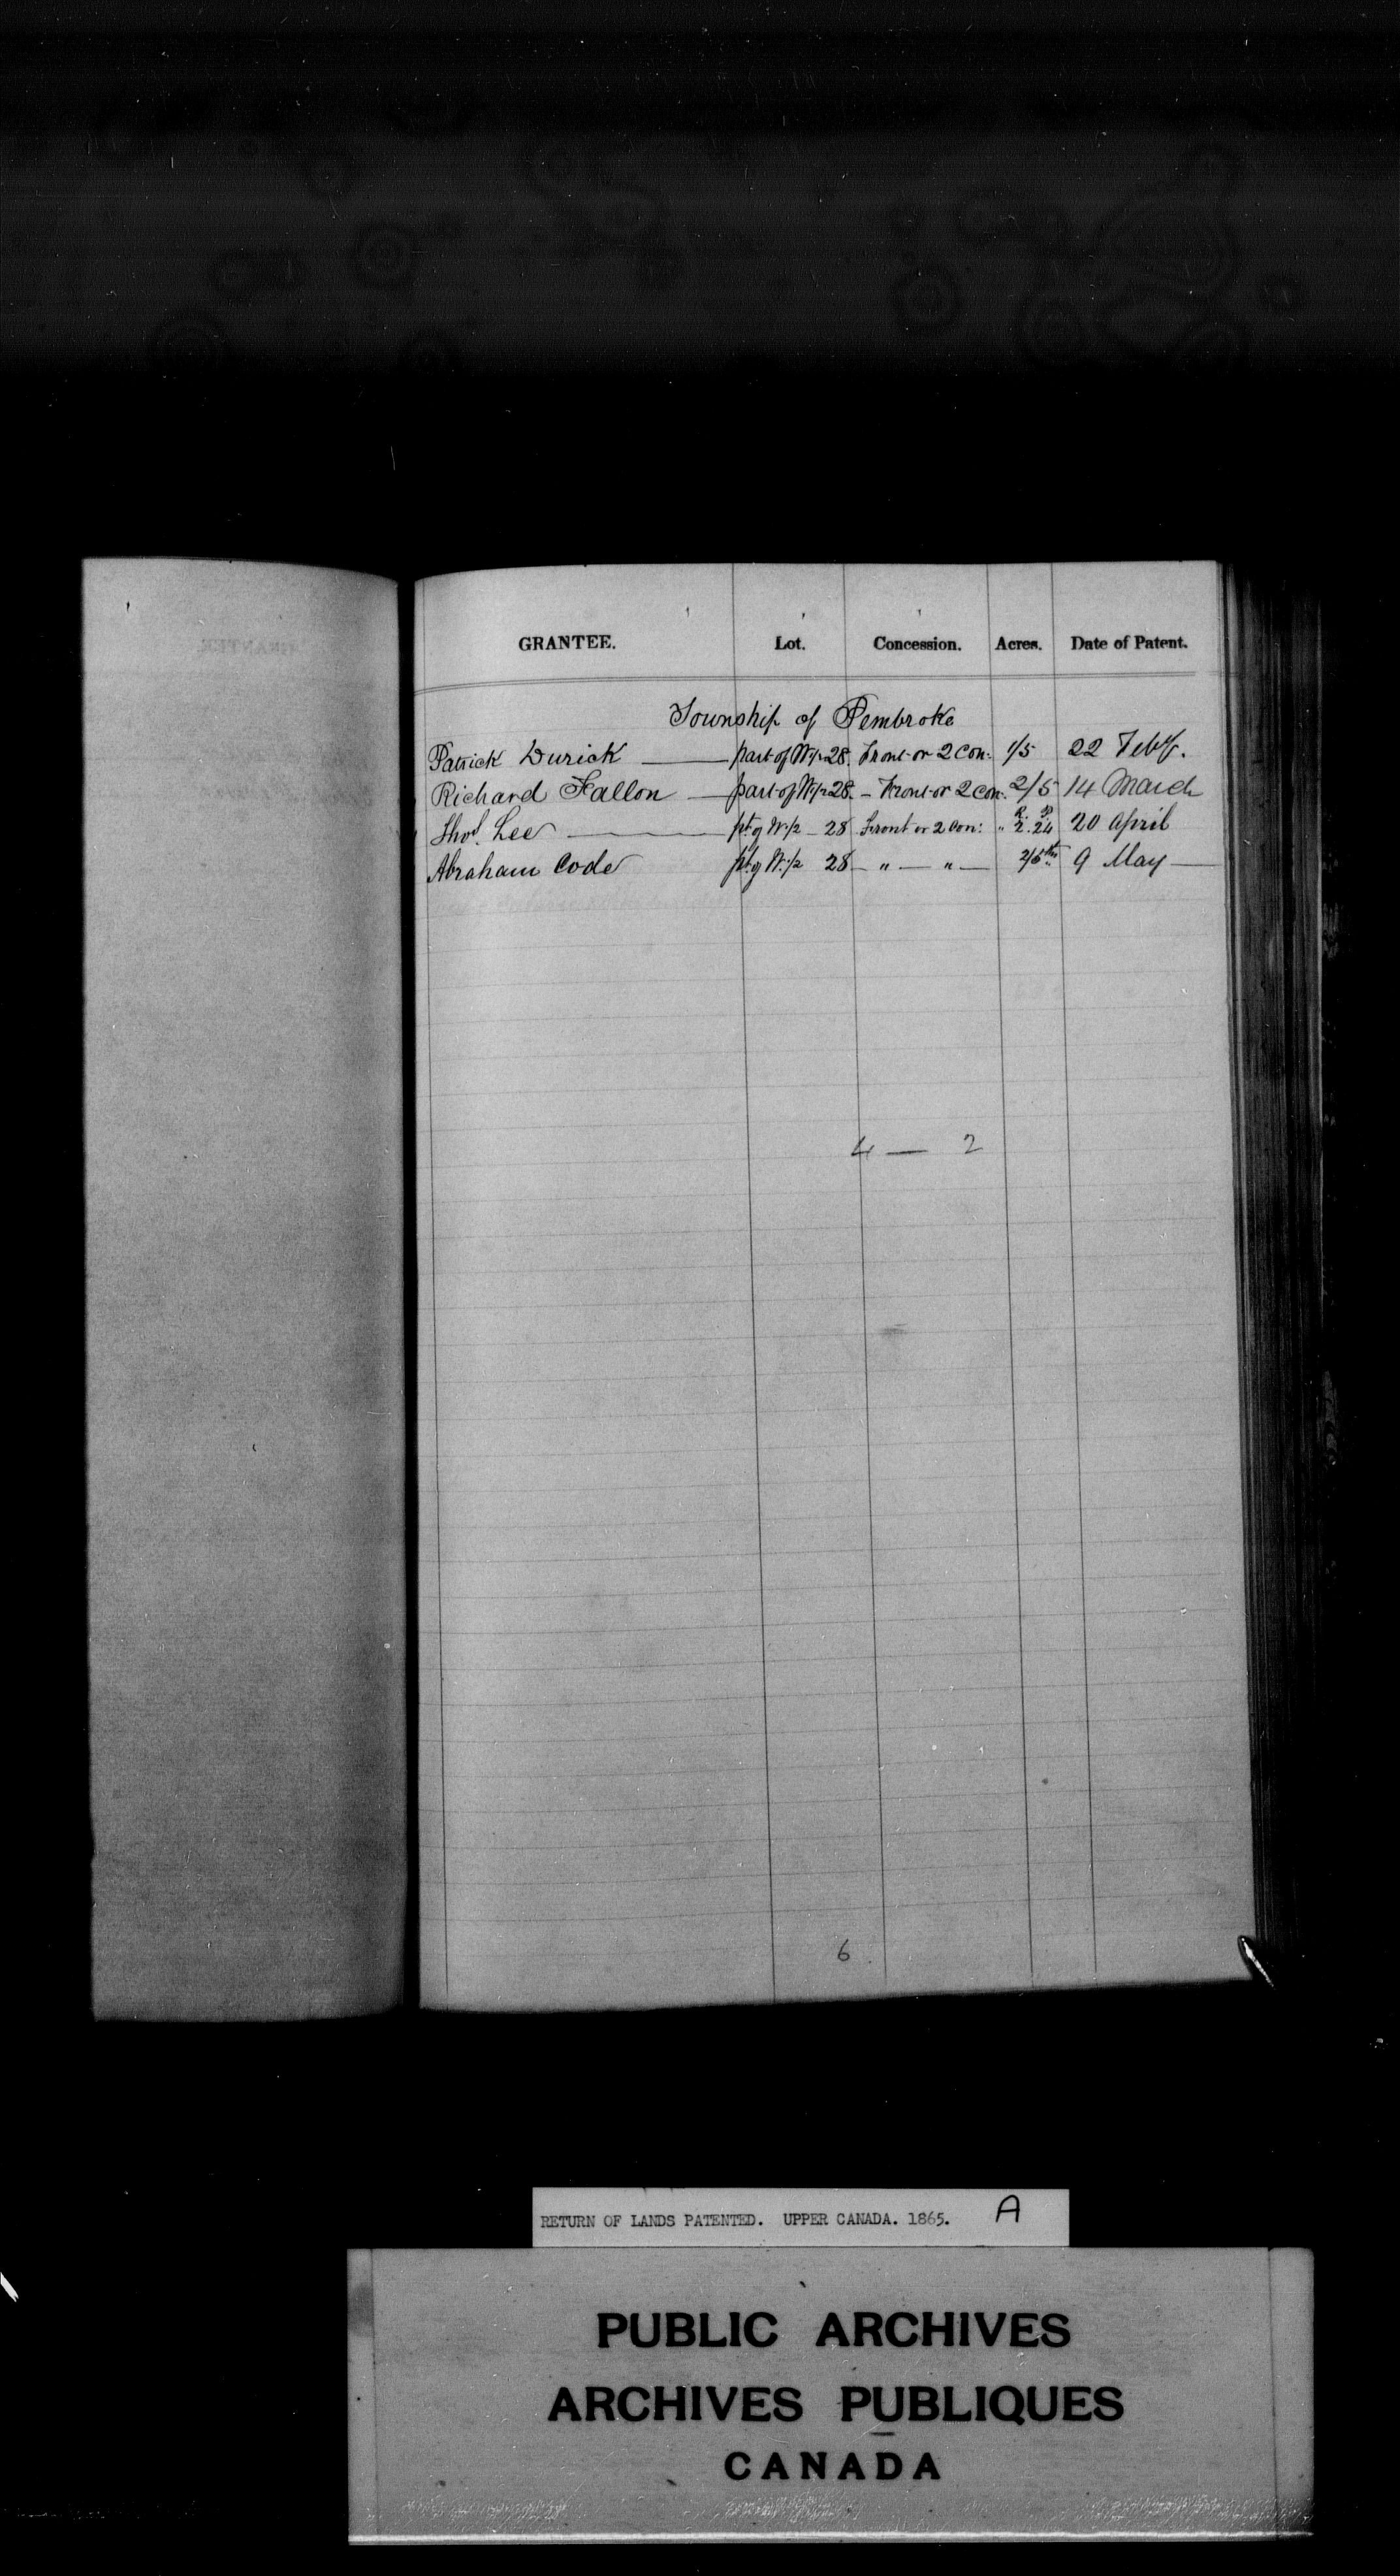 GRANTEE. Lot. Concession. Acres. Date of Patent.
Township of Pembroke
Patrick Durick — part of W 1/2 28. Front or 2 Con: 1/5 22 Feby.
Richard Fallon — part of W 1/2 28. — Front or 2 Con: 2/5 14 March
R. P.
Thos. Lee — pt. of W. 1/2 — 28 Front or 2 Con: " 2. 24 20 April
Abraham Code pt. of W. 1/2 28 — " — " — 2/5ths 9 May —
4 — 2
6
RETURN OF LANDS PATENTED. UPPER CANADA. 1865. A
PUBLIC ARCHIVES
ARCHIVES PUBLIQUES
CANADA